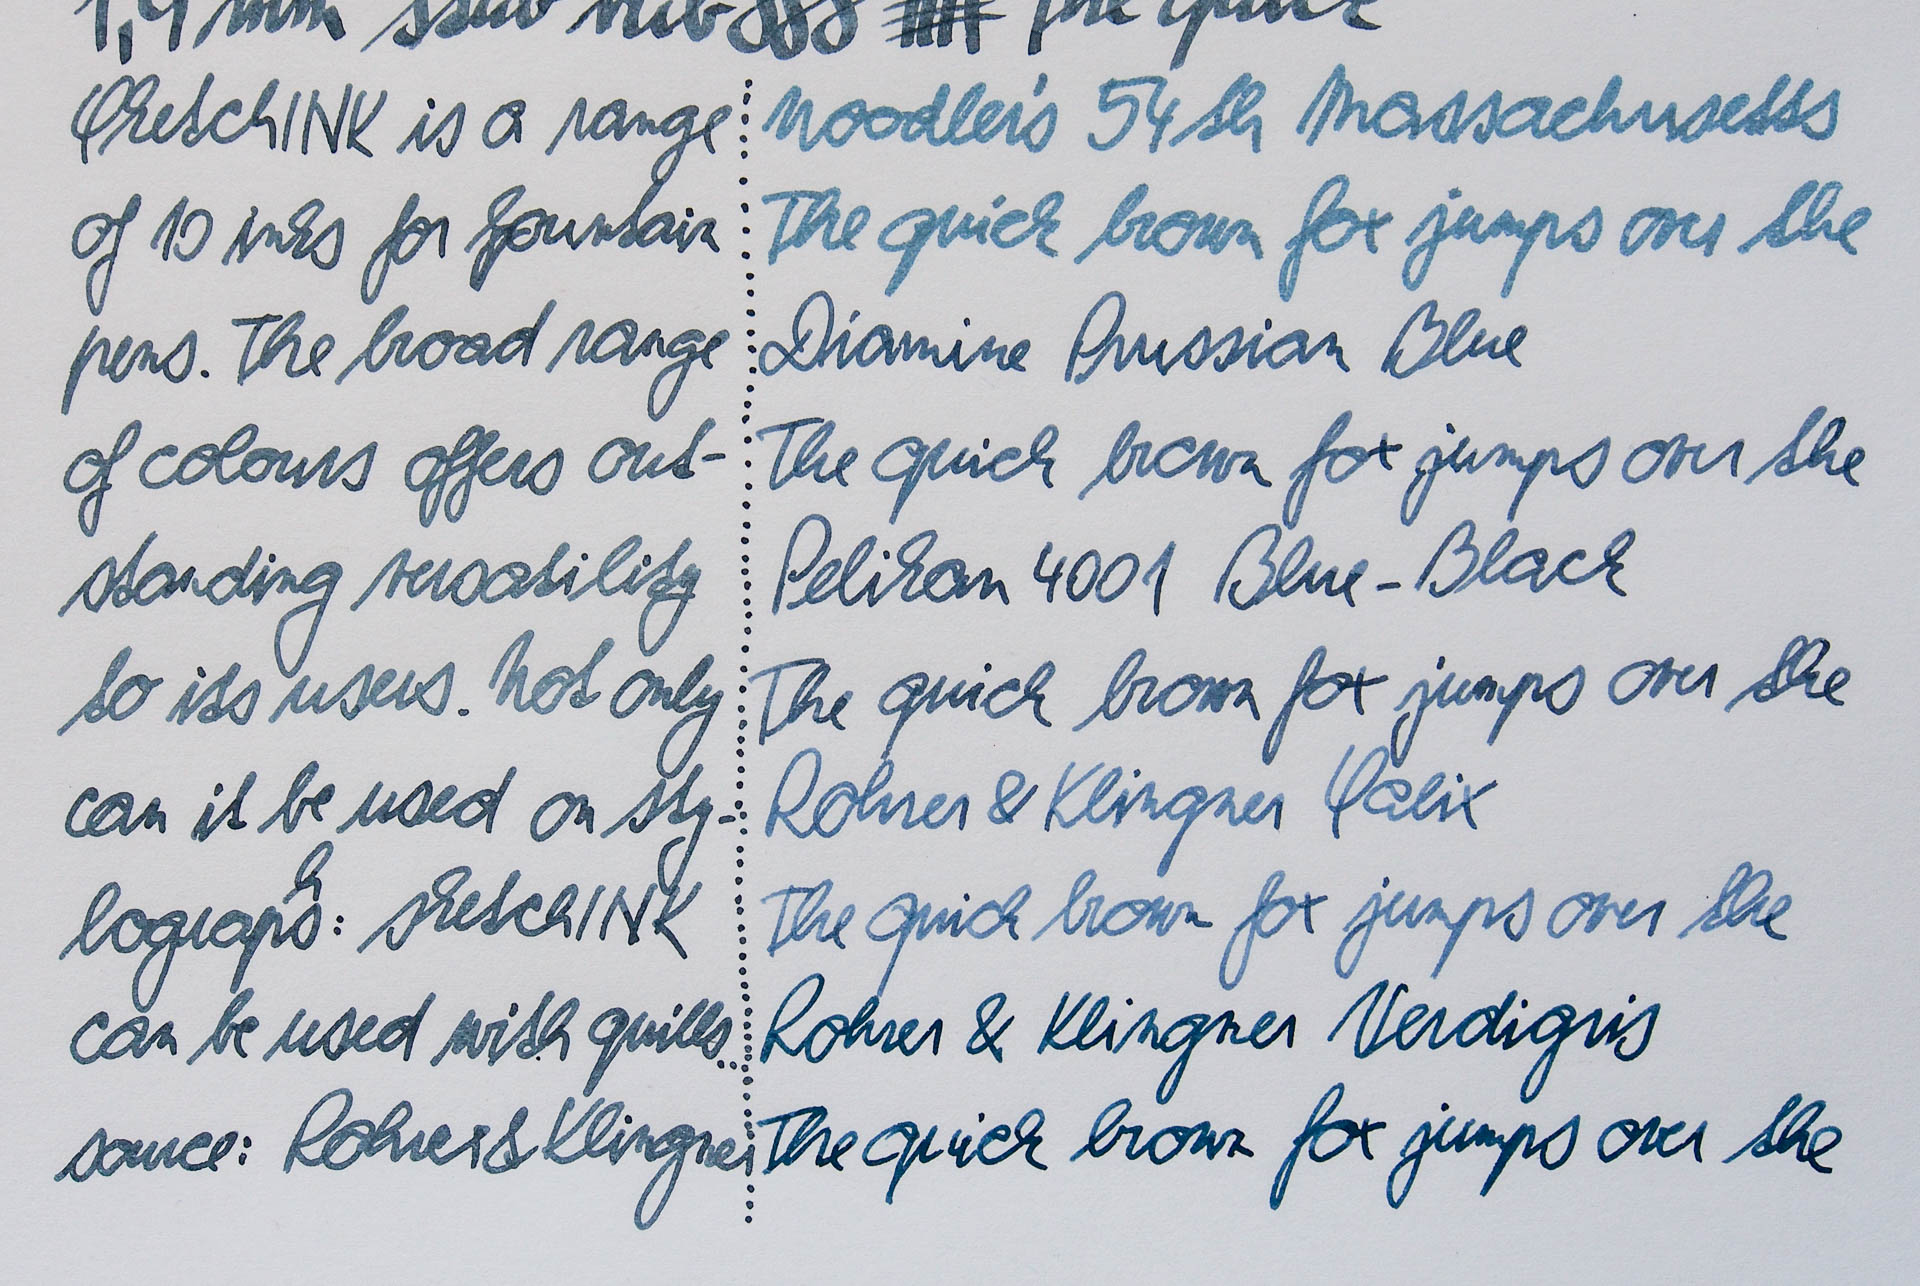 1,9 mm stub nib The quick
SketchINK is a range
of 10 inks for fountain
pens. The broad range
of colours offers out-
standing versatility
to its users. Not only
can it be used on sty-
lographs: sketchINK
can be used with quills...
source: Rohrer & Klingner
Noodler's 54th Massachusetts
The quick brown fox jumps over the
Diamine Prussian Blue
The quick brown fox jumps over the
Pelikan 4001 Blue-Black
The quick brown fox jumps over the
Rohrer & Klingner Salix
The quick brown fox jumps over the
Rohrer & Klingner Verdigris
The quick brown fox jumps over the